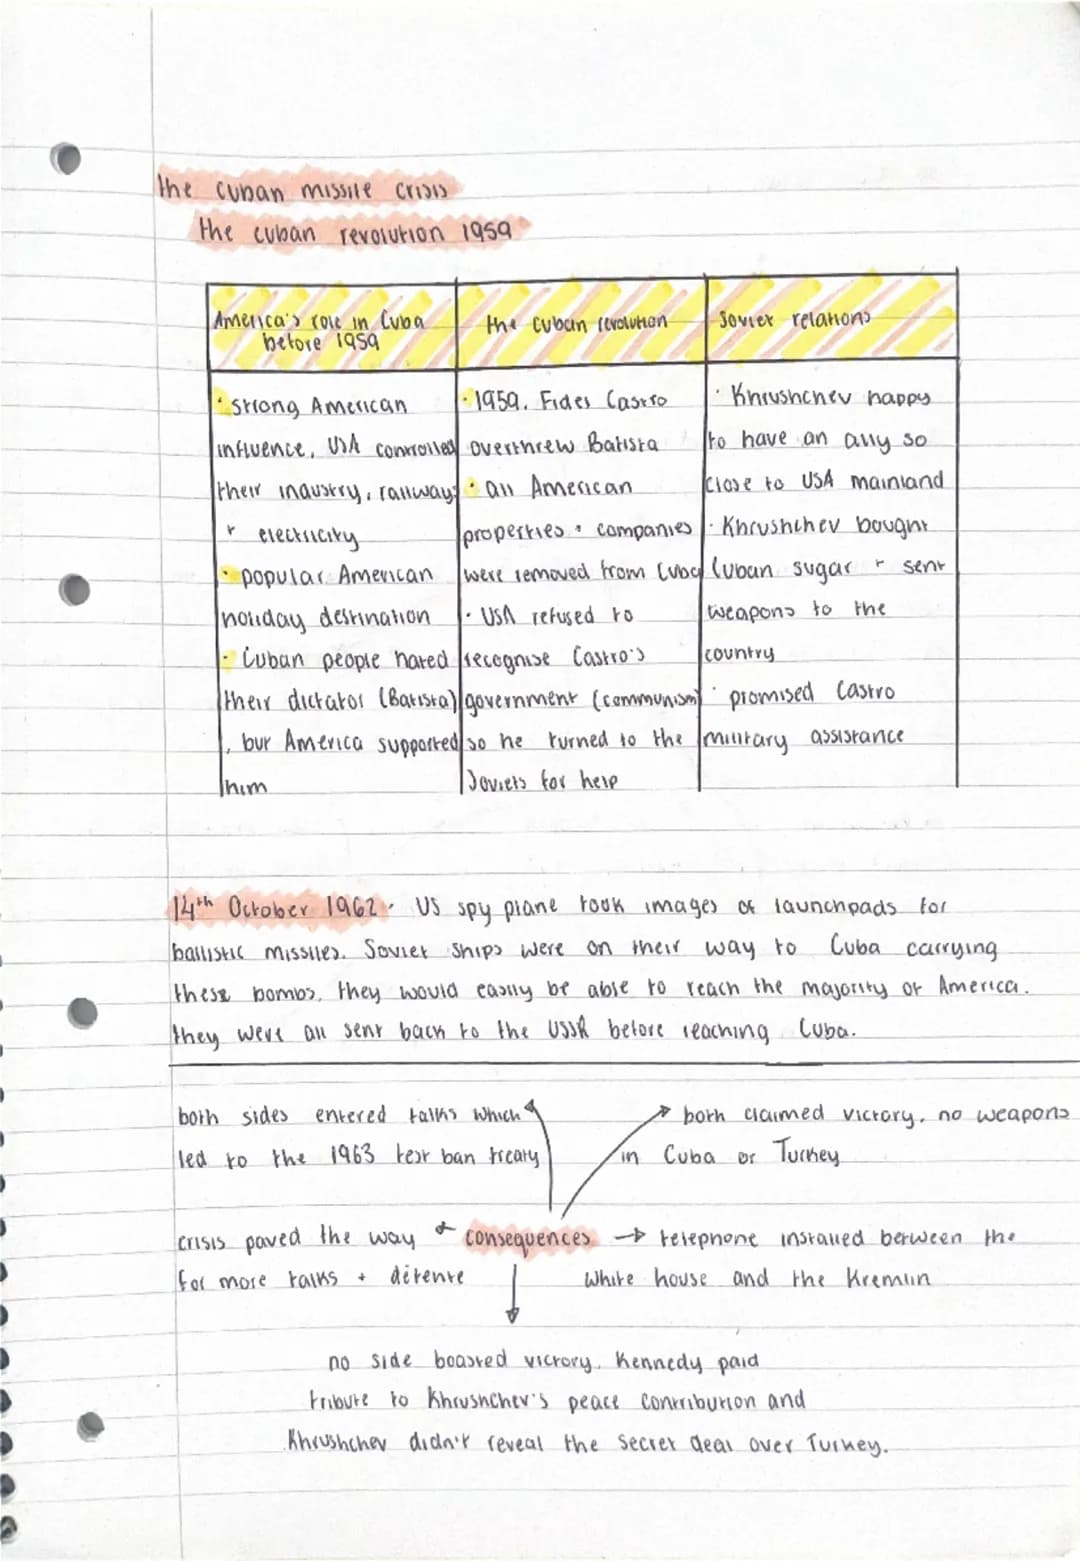 the cuban missile crisis
the cuban revolution 1959
America's role in Cuba
before 1959
· strong American
influence, USA controlled
their industry, railways
+ electricity
· popular American
holiday destination
· Cuban people hated
their dictator (Batista)
, but America supported
him
the cuban revolution
· 1959, Fides Castro
overthrew Batista
· all American
properties + companies
were removed from Cuba
· USA refused to
recognise Castro's
government (communism)
so he turned to the
Soviets for help
Soviet relations
· Khrushchev happy
to have an ally so
close to USA mainland
· Khrushchev bought
Cuban sugar + sent
weapons to the
country
· promised Castro
military assistance
14th October 1962 · US spy plane took images of launchpads for
ballistic missiles. Soviet ships were on their way to Cuba carrying
these bombs, they would easily be able to reach the majority of America.
they were all sent back to the USSR before reaching Cuba.
both sides entered talks which
led to the 1963 test ban treaty
both claimed victory, no weapons
in Cuba or Turkey
crisis paved the way
for more talks + détente
consequences
telephone installed between the
white house and the Kremlin
no side boasted victory. Kennedy paid
tribute to Khrushchev's peace contribution and
Khrushchev didn't reveal the secret deal over Turkey.